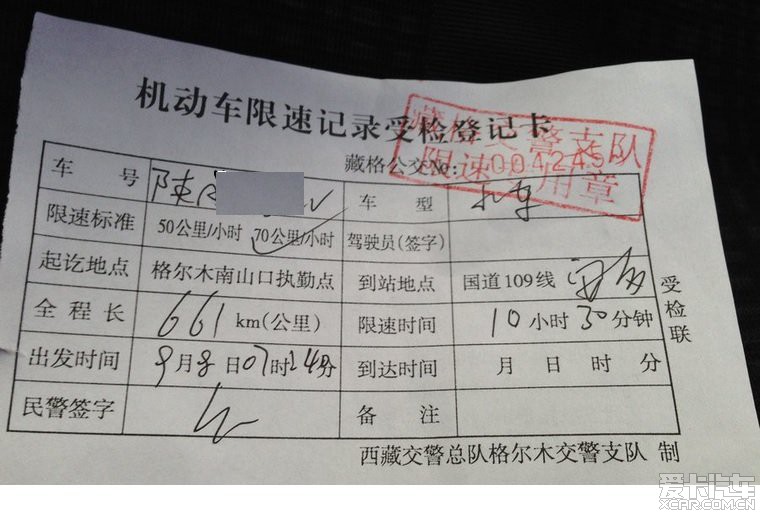 机动车限速记录受检登记卡
藏格公交No: 004245
藏格交警支队
限速专用章
车 号 陕A 车 型
限速标准 50公里/小时 70公里/小时 驾驶员(签字)
起讫地点 格尔木南山口执勤点 到站地点 国道109线
全程长 661 km(公里) 限速时间 10 小时 30 分钟
出发时间 9月8日07时24分 到达时间 月 日 时 分
民警签字 备 注
受检联
西藏交警总队格尔木交警支队 制
爱卡汽车
XCAR.COM.CN